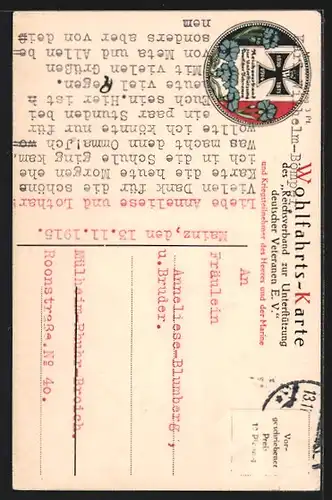 Mainz, den, 13.11.1915.
Liebe Anneliese und Lothar
Vielen Dank für die schöne
Karte die heute Morgen ehe
ich in die Schule ging kam.
Was macht denn Omma! Jch wo
wollte ich könnte nur für
ein paar Stunden bei
Euch sein. Hier ist
heute viel Regen.
Mit vielen Grüßen
von Meta und Allen be
sonders aber von dein
nem
Wohlfahrts-Karte
des „Reichsverband zur Unterstützung
deutscher Veteranen E. V.“
und Kriegsteilnehmer des Heeres und der Marine
Vor-
geschriebener
Preis
10 Pfennig
An
Fräulein
Anneliese-Blumberg;
u.Bruder.
Mülheim-Rhuhr-Broich.
Roonstraße.No 40.